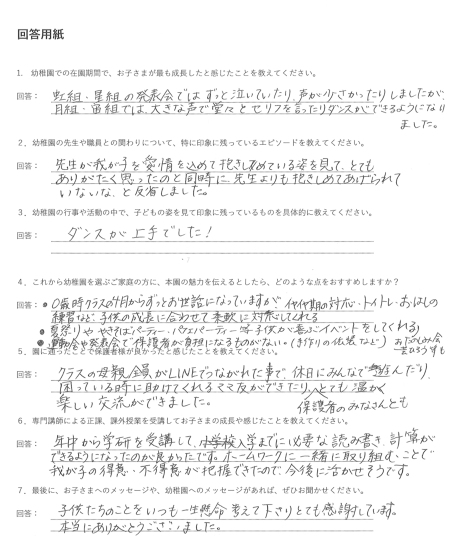 回答用紙
1. 幼稚園での在園期間で、お子さまが最も成長したと感じたことを教えてください。
回答： 虹組・星組の発表会ではずっと泣いていたり、声が少さかったりしましたが、
月組・宙組では、大きな声で堂々とセリフを言ったりダンスができるようになり
ました。
2. 幼稚園の先生や職員との関わりについて、特に印象に残っているエピソードを教えてください。
回答： 先生が我が子を愛情を込めて抱きしめている姿を見て、とても
ありがたく思ったのと同時に、先生よりも抱きしめてあげられて
いないな、と反省しました。
3. 幼稚園の行事や活動の中で、子どもの姿を見て印象に残っているものを具体的に教えてください。
回答： ダンスが上手でした！
4. これから幼稚園を選ぶご家庭の方に、本園の魅力を伝えるとしたら、どのような点をおすすめしますか？
回答： ●0歳時クラスの4月からずっとお世話になっていますが、イヤイヤ期の対応・トイトレ・おはしの
練習など、子供の成長に合わせて柔軟に対応してくれる
●夏祭りややきそばパーティー・パフェパーティー等子供が喜ぶイベントをしてくれる
●運動会や発表会で保護者が負担になるものがない。(手作りの依装など)
5. 園に通ったことで保護者様が良かったと感じたことを教えてください。
回答： クラスの母親全員がLINEでつながれた事で、休日にみんなで遊んだり、
困っている時に助けてくれるママ友ができたり、とても温かく
楽しい交流ができました。
保護者のみなさんとも
6. 専門講師による正課、課外授業を受講してお子さまの成長や感じたことを教えてください。
回答： 年中から学研を受講して、小学校入学までに必要な読み書き、計算が
できるようになったのが良かったです。ホームワークに一緒に取り組むことで
我が子の得意・不得意が把握できたので、今後に活かせそうです。
7. 最後に、お子さまへのメッセージや、幼稚園へのメッセージがあれば、ぜひお聞かせください。
回答： 子供たちのことをいつも一生懸命考えて下さりとても感謝しています。
本当にありがとうございました。